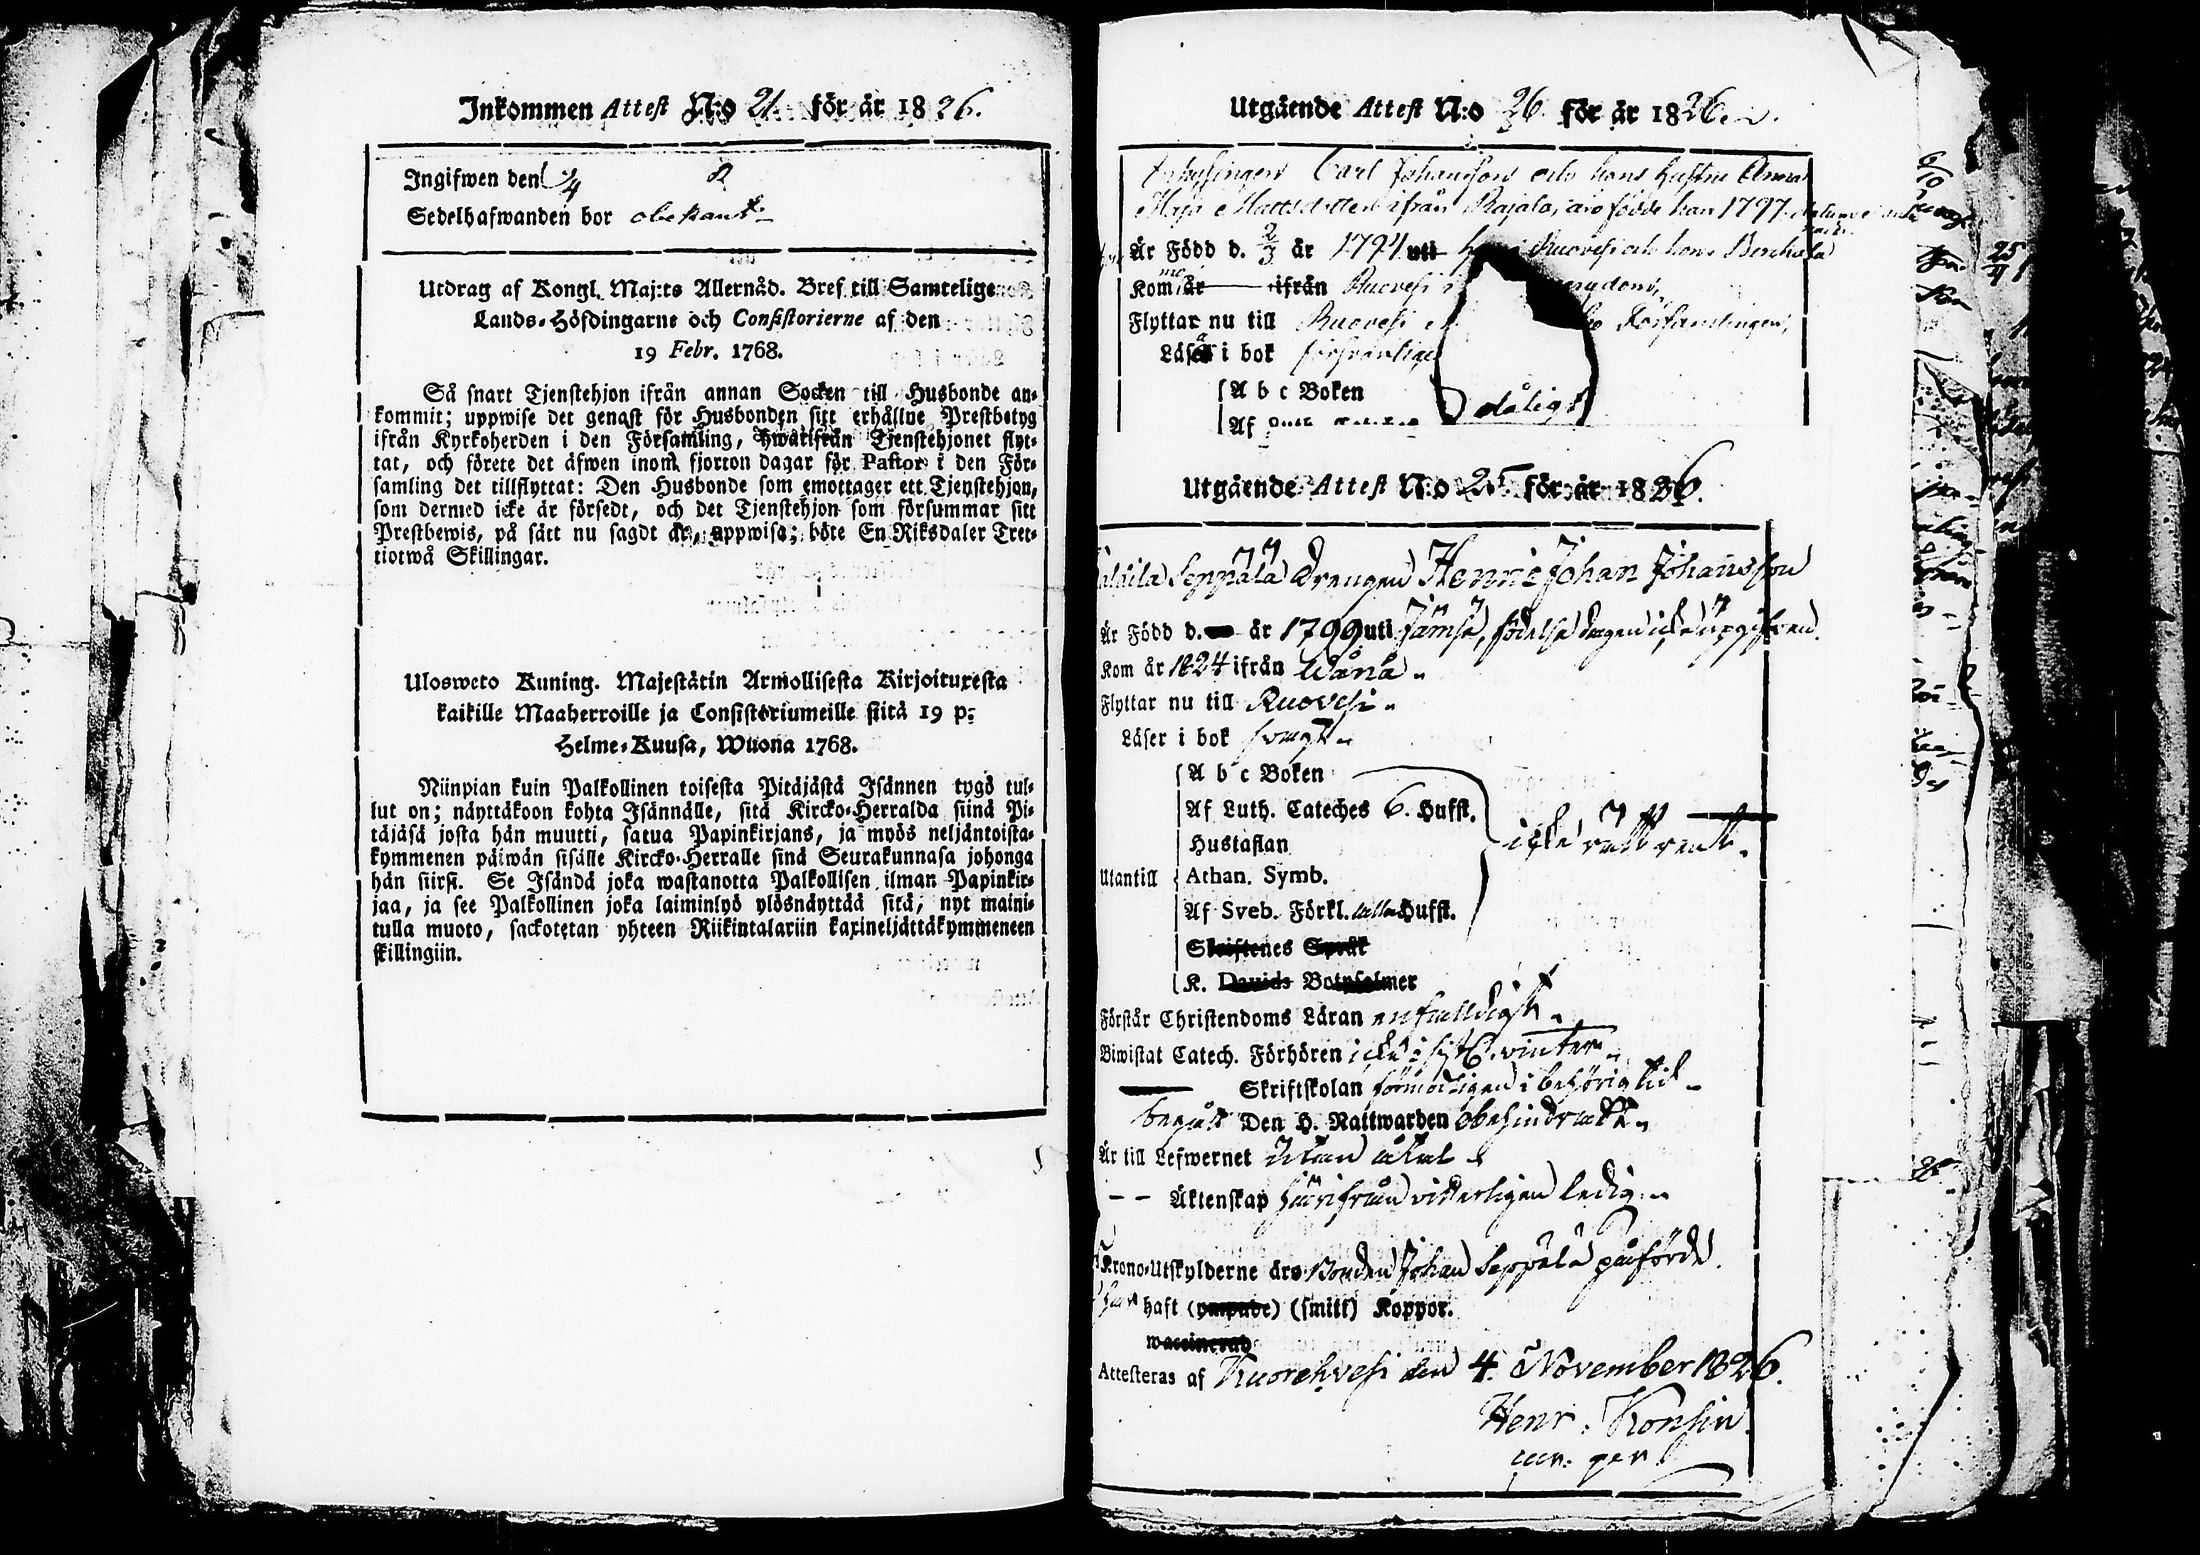 Inkommen Attest N:o 21. för år 1826.
Ingifwen den
Sedelhafwanden bor obekant
Utdrag af Kongl. Maj:ts Allernåd. Bref till Samtelige
Lands-Höfdingarne och Consistorierne af den
19 Febr. 1768.
Så snart Tjenstehjon ifrån annan Socken till Husbonde an-
kommit; uppwise det genast för Husbonden sitt erhållne Prestbetyg
ifrån Kyrkoherden i den Församling, hwarifrån Tjenstehjonet flyt-
tat, och förete det äfwen inom fjorton dagar för Pastor i den För-
samling det tillflyttat: Den Husbonde som emottager ett Tjenstehjon,
som dermed icke är försedt, och det Tjenstehjon som försummar sitt
Prestbewis, på sätt nu sagdt är, uppwisa; böte En Riksdaler Tret-
tiotwå Skillingar.
Ulosweto Kuning. Majestätin Armollisesta Kirjoituxesta
kaikille Maaherroille ja Consistoriumeille siitä 19 p:
Helme-Kuusa, Wuona 1768.
Niinpian kuin Palkollinen toisesta Pitäjästä Isännen tygö tul-
lut on; näyttäkoon kohta Isännälle, sitä Kircko-Herralda siinä Pi-
täjäsä josta hän muutti, satua Papinkirjans, ja myös neljäntoista-
kymmenen päiwän sisälle Kircko-Herralle sinä Seurakunnasa johonga
hän siirsi. Se Isändä joka wastanotta Palkollisen ilman Papinkir-
jaa, ja see Palkollinen joka laiminlyö ylösnäyttää sitä, nyt maini-
tulla muoto, sackotetan yhteen Riikintalariin kaxineljättäkymmeneen
skillingiin.
Utgående Attest N:o 26. för år 1826.
Carl Johansson och hans hustru Anna
Maja Mattsdotter ifrån Rajala, äro födde han 1797
Är Född d. 2/3 år 1794 uti Ruovesi och hon
Kom år ifrån Ruovesi
Flyttar nu till Ruovesi Församlingen,
Läser i bok försvarlige
A b c Boken
dåligt
Af
Utgående Attest N:o 25. för år 1826.
Seppälä Drengen Henric Johan Johansson
Är Född d. år 1799 uti Jämsä, födelse dagen icke upgifven.
Kom år 1824 ifrån Wånå
Flyttar nu till Ruovesi
Läser i bok svagt
A b c Boken
Af Luth. Cateches 6. Hufst.
Hustaflan
icke rätt rent.
Utantill Athan. Symb.
Af Sveb. Förkl. alla Hufst.
Skriftenes Språk
K. Davids Botpsalmer
Förstår Christendoms Läran enfalldigt
Biwistat Catech. Förhören icke sistl. vinter
Skriftskolan förmodligen i behörig tid
begått Den H. Nattwarden obehindradt
Är till Lefwernet utan åtal
Äktenskap härifrån vitterligen ledig
Krono-Utskylderne äro Bonden Johan Seppälä påförde.
har haft (ympade) (smitt) Koppor.
waccinerad
Attesteras af Kuorehvesi den 4. November 1826.
Henr. Konsin